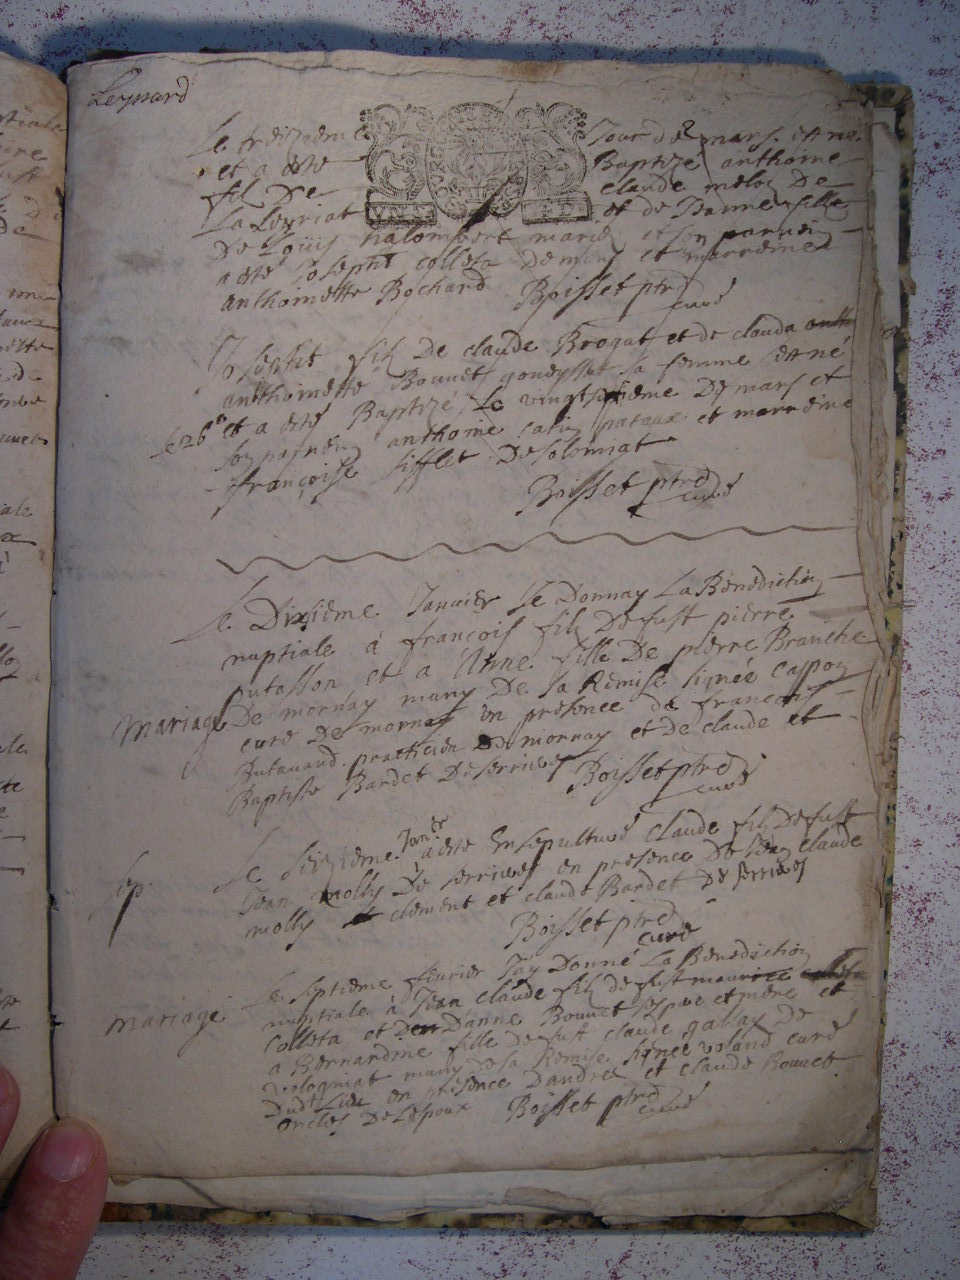 Leynard
Le treizieme jour de mars est né
et a esté Baptizé anthoine
fil De claude meloz De
La Leyriat et de Danne fille
De Louis nalombert mariez et son parrein
a esté Joseph colleta et marreine
anthoinette Bochard Boisset ptre
curé
Joseph fil De claude Brogat et de clauda
anthoinette Bouvet sa femme est né
le 26e et a esté Baptizé Le vingt sixieme De mars et
son parrein anthoine catin pataux et marreine
françoise sifflet De solomiat
Boisset ptre
curé
Le Dixieme Janvier Je Donnay La Benediction
nuptiale à françois fil De fust pierre
putasson et a Anne fille De pierre Branche
mariage De mornay muny De La Remise signée cappon
curé De mornay en presence de françois
practicien De mornay et de claude et
Baptiste Bardet De serrieres Boisset ptre
curé
sep. Le seizieme Janvier a esté Ensepulturé claude fil De fust
Jean molly De serrieres en presence De Jean claude
molly clement et claude Bardet De serrieres
Boisset ptre
curé
mariage Le septieme fevrier Jay Donné La Benediction
nuptiale à Jean claude fil de fust maurice
Colleta et Danne Bouvet ses pere et mere et
a Bernardine fille De fust claude gabay De
volognat muny de la Remise signée voland curé
Dudt Lieu en presence Dandré et claude Bouvet
oncles De Lespoux Boisset ptre
curé